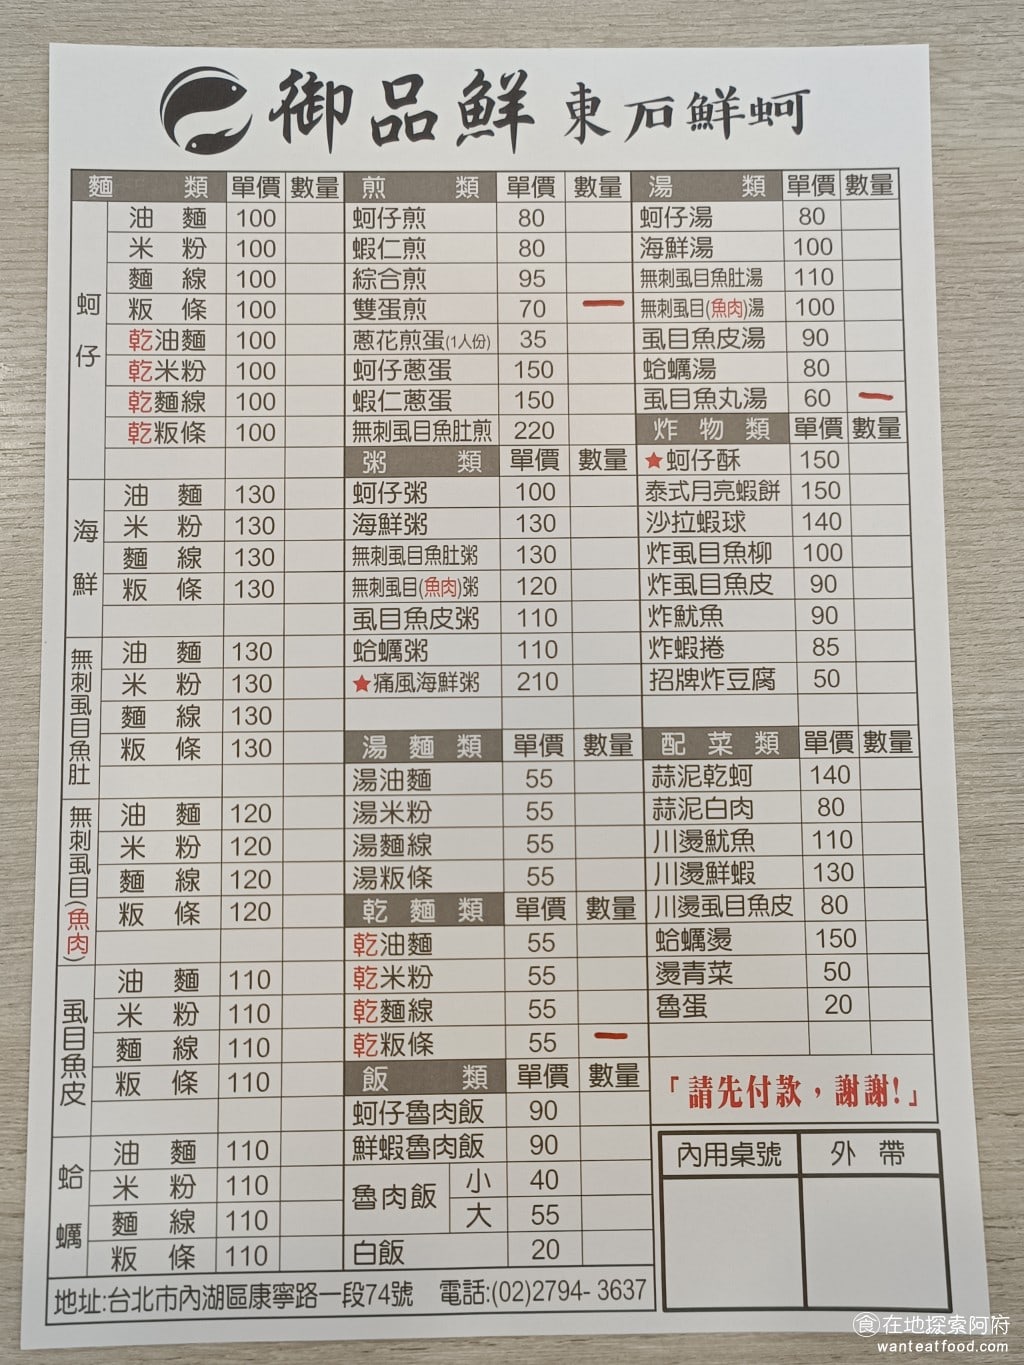 御品鮮 東石鮮蚵
麵類 單價 數量
蚵仔
油麵 100
米粉 100
麵線 100
粄條 100
乾油麵 100
乾米粉 100
乾麵線 100
乾粄條 100
海鮮
油麵 130
米粉 130
麵線 130
粄條 130
無刺虱目魚肚
油麵 130
米粉 130
麵線 130
粄條 130
無刺虱目(魚肉)
油麵 120
米粉 120
麵線 120
粄條 120
虱目魚皮
油麵 110
米粉 110
麵線 110
粄條 110
蛤蠣
油麵 110
米粉 110
麵線 110
粄條 110
煎類 單價 數量
蚵仔煎 80
蝦仁煎 80
綜合煎 95
雙蛋煎 70 一
蔥花煎蛋(1人份) 35
蚵仔蔥蛋 150
蝦仁蔥蛋 150
無刺虱目魚肚煎 220
粥類 單價 數量
蚵仔粥 100
海鮮粥 130
無刺虱目魚肚粥 130
無刺虱目(魚肉)粥 120
虱目魚皮粥 110
蛤蠣粥 110
★痛風海鮮粥 210
湯麵類 單價 數量
湯油麵 55
湯米粉 55
湯麵線 55
湯粄條 55
乾麵類 單價 數量
乾油麵 55
乾米粉 55
乾麵線 55
乾粄條 55 一
飯類 單價 數量
蚵仔魯肉飯 90
鮮蝦魯肉飯 90
魯肉飯 小 40
大 55
白飯 20
湯類 單價 數量
蚵仔湯 80
海鮮湯 100
無刺虱目魚肚湯 110
無刺虱目(魚肉)湯 100
虱目魚皮湯 90
蛤蠣湯 80
虱目魚丸湯 60 一
炸物類 單價 數量
★蚵仔酥 150
泰式月亮蝦餅 150
沙拉蝦球 140
炸虱目魚柳 100
炸虱目魚皮 90
炸魷魚 90
炸蝦捲 85
招牌炸豆腐 50
配菜類 單價 數量
蒜泥乾蚵 140
蒜泥白肉 80
川燙魷魚 110
川燙鮮蝦 130
川燙虱目魚皮 80
蛤蠣燙 150
燙青菜 50
魯蛋 20
「請先付款，謝謝!」
內用桌號 外帶
地址:台北市內湖區康寧路一段74號 電話:(02)2794-3637
食在地探索阿府
wanteatfood.com